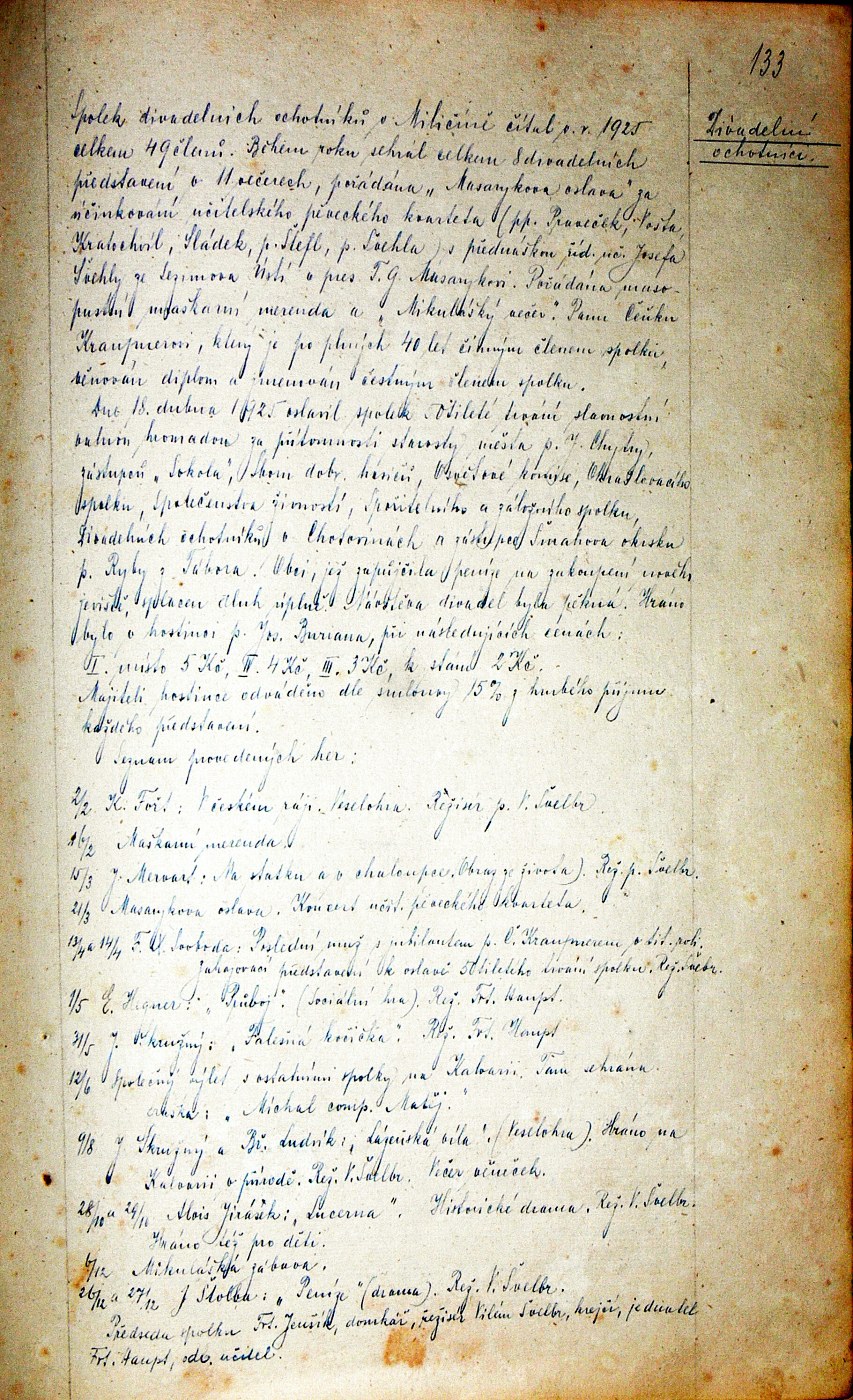 133
Divadelní
ochotníci.
Spolek divadelních ochotníků v Miličíně čítal v r. 1925
celkem 49 členů. Během roku sehrál celkem 8 divadelních
představení v 11 večerech, pořádána „Masarykova oslava" za
účinkování učitelského pěveckého kvarteta (pp. Praveček, Vošta,
Kratochvíl, Sládek, p. Štefl, p. Švehla) s přednáškou říd. uč. Josefa
Švehly ze Sezimova Ústí o pres. T. G. Masarykovi. Pořádána maso-
pustní maškarní merenda a „Mikulášský večer". Panu Čeňku
Kraupnerovi, který je po plných 40 let činným členem spolku,
věnován diplom a jmenován čestným členem spolku.
Dne 18. dubna 1925 oslavil spolek 50tileté trvání slavnostní
valnou hromadou za přítomnosti starosty města p. J. Chytry,
zástupců „Sokola", Sboru dobr. hasičů, Osvětové komise, Okrašlovacího
spolku, Společenstva živností, Spořitelního a záložního spolku,
Divadelních ochotníků v Chotovinách a zástupce Šmahova okrsku
p. Ryby z Tábora. Obci, jež zapůjčila peníze na zakoupení nového
jeviště, splacen dluh úplně. Návštěva divadel byla pěkná. Hráno
bylo v hostinci p. Jos. Buriana, při následujících cenách:
I. místo 5 Kč, II. 4 Kč, III. 3 Kč, k stání 2 Kč.
Majiteli hostince odváděno dle smlouvy 15% z hrubého příjmu
každého představení.
Seznam provedených her:
2/2 K. Fořt: V českém ráji. Veselohra. Režisér p. V. Švelbr.
16/2 Maškarní merenda.
15/3 J. Mervart: Na statku a v chaloupce. Obraz ze života). Rež. p. Švelbr.
21/3 Masarykova oslava. Koncert učit. pěveckého kvarteta.
13/4 a 14/4 F. X. Svoboda: Poslední muž s jubilantem p. Č. Kraupnerem v tit. roli.
Zahajovací představení k oslavě 50tiletého trvání spolku. Rež. Švelbr.
1/5 E. Hegner: „Průboj". (Sociální hra). Rež. Frt. Haupt.
31/5 J. Skružný: „Falešná kočička". Rež. Frt. Haupt
12/6 Společný výlet s ostatními spolky na Kalvarii. Tam sehrána
fraška: „Michal comp. Matěj."
9/8 J. Skružný a Bř. Ludvík: „Lázeňská víla". (Veselohra). Hráno na
Kalvarii v přírodě. Rež. V. Švelbr. Večer věneček.
28/10 a 29/10 Alois Jirásek: „Lucerna". Historické drama. Rež. V. Švelbr.
Hráno též pro děti.
6/12 Mikulášská zábava.
26/12 a 27/12 J. Štolba: „Peníze" (drama). Rež. V. Švelbr.
Předseda spolku Frt. Jenšík, domkář, režisér Vilém Švelbr, krejčí, jednatel
Frt. Haupt, odb. učitel.